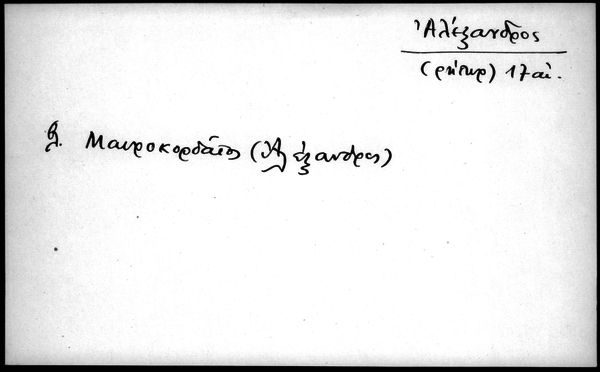 Ἀλέξανδρος
(ρήτωρ) 17 αἰ.
βλ. Μαυροκορδᾶτος (Ἀλέξανδρος)